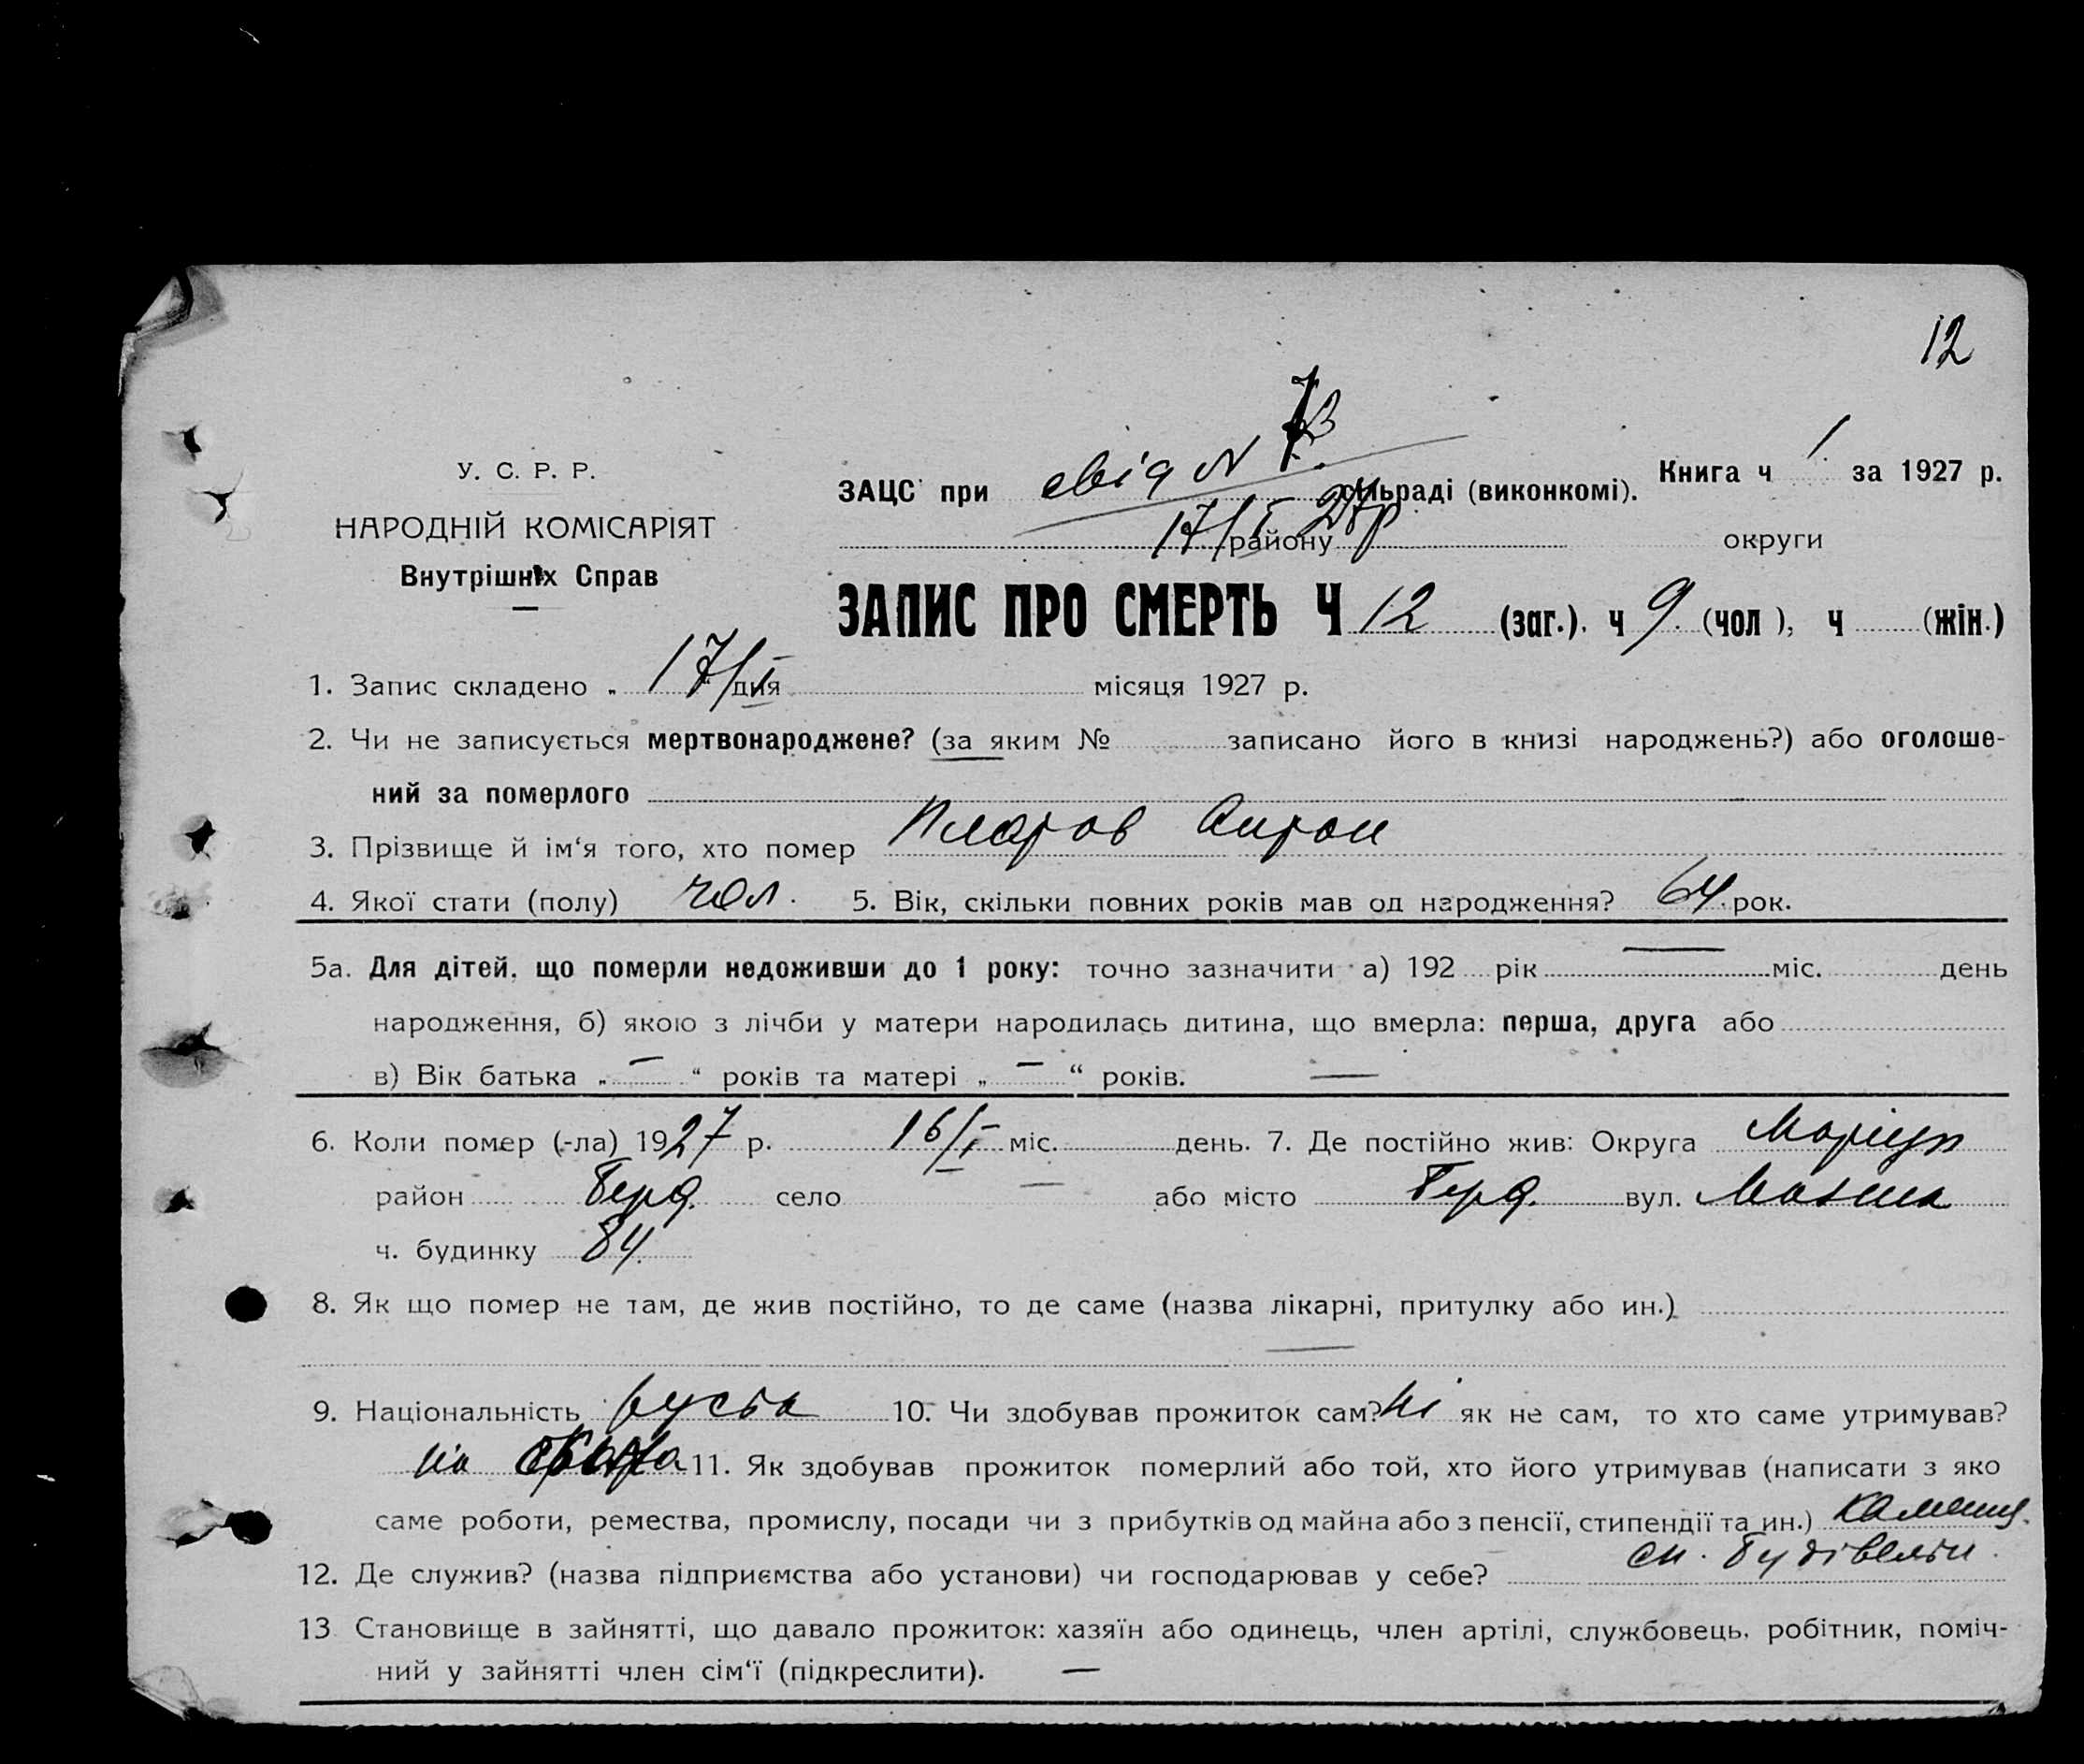 12
У. С. Р. Р.
НАРОДНІЙ КОМІСАРІЯТ
Внутрішніх Справ
ЗАЦС при свід N сільраді (виконкомі). Книга ч 1 за 1927 р.
17/I 27р району округи
ЗАПИС ПРО СМЕРТЬ Ч 12 (заг.). ч 9. (чол ), ч (жін.)
1. Запис складено „ 17/I дня місяця 1927 р.
2. Чи не записується мертвонароджене? (за яким № записано його в книзі народжень?) або оголоше-
ний за померлого
3. Прізвище й ім‘я того, хто помер
4. Якої стати (полу) чол. 5. Вік, скільки повних років мав од народження? 64 рок.
5а. Для дітей. що померли недоживши до 1 року: точно зазначити а) 192 рік — міс. день
народження, б) якою з лічби у матери народилась дитина, що вмерла: перша, друга або
в) Вік батька „ — “ років та матері „ — “ років. —
6. Коли помер (-ла) 1927 р. 16/I міс. день. 7. Де постійно жив: Округа Маріуп
район Берд. село — або місто Берд. вул.
ч. будинку 84.
8. Як що помер не там, де жив постійно, то де саме (назва лікарні, притулку або ин.)
—
9. Національність руська 10. Чи здобував прожиток сам? Ні як не сам, то хто саме утримував?
11. Як здобував прожиток померлий або той, хто його утримував (написати з яко
саме роботи, ремества, промислу, посади чи з прибутків од майна або з пенсії, стипендії та ин.) каменщ.
12. Де служив? (назва підприємства або установи) чи господарював у себе? сп. Будівельн.
13 Становище в зайнятті, що давало прожиток: хазяїн або одинець, член артілі, службовець, робітник, поміч-
ний у зайнятті член сім‘ї (підкреслити). —